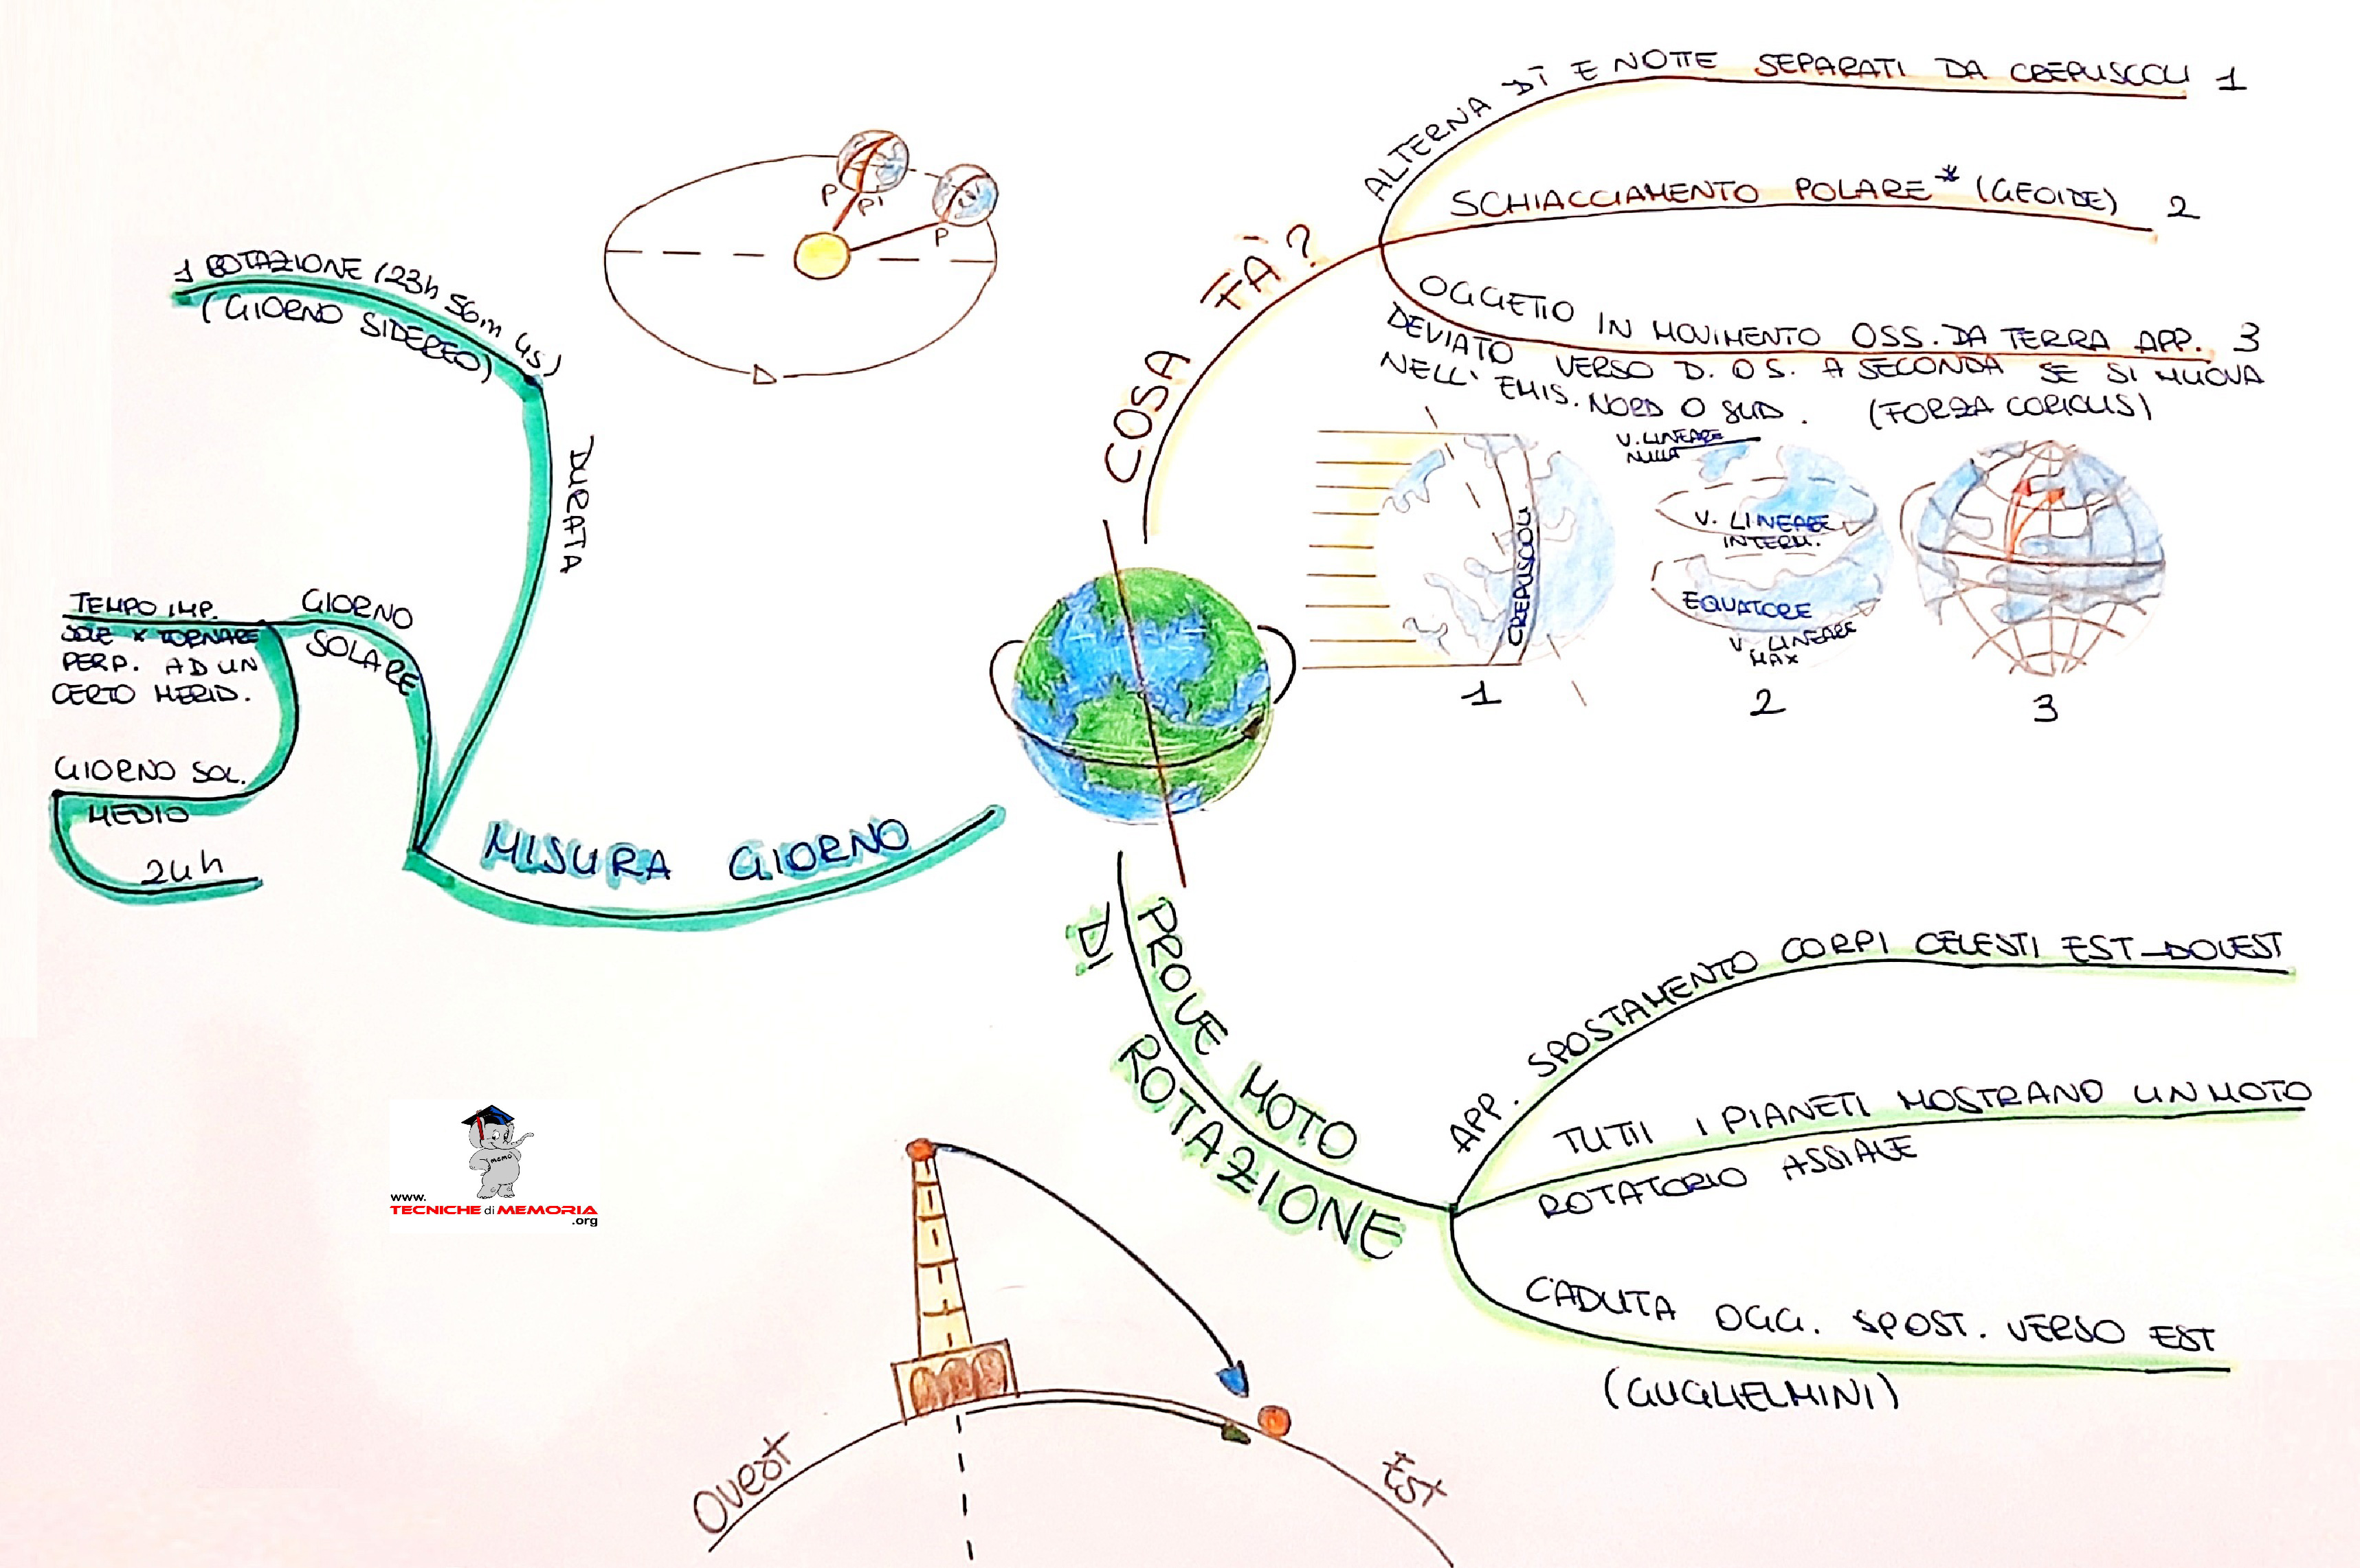 COSA FÀ?
ALTERNA DÌ E NOTTE SEPARATI DA CREPUSCOLI 1
SCHIACCIAMENTO POLARE* (GEOIDE) 2
OGGETTO IN MOVIMENTO OSS. DA TERRA APP. 3
DEVIATO VERSO D. O S. A SECONDA SE SI MUOVA
NELL' EMIS. NORD O SUD. (FORZA CORIOLIS)
CREPUSCOLI
1
V. LINEARE
NULLA
V. LINEARE
INTERM.
EQUATORE
V. LINEARE
MAX
2
3
P
P'
P
MISURA GIORNO
DURATA
1 ROTAZIONE (23h 56m 4s)
(GIORNO SIDEREO)
GIORNO
SOLARE
TEMPO IMP.
SOLE X TORNARE
PERP. AD UN
CERTO MERID.
GIORNO SOL.
MEDIO
24h
PROVE MOTO
DI ROTAZIONE
APP. SPOSTAMENTO CORPI CELESTI EST-OVEST
TUTTI I PIANETI MOSTRANO UN MOTO
ROTATORIO ASSIALE
CADUTA OGG. SPOST. VERSO EST
(GUGLIELMINI)
Ovest
Est
MEMO
www.
TECNICHE di MEMORIA
.org